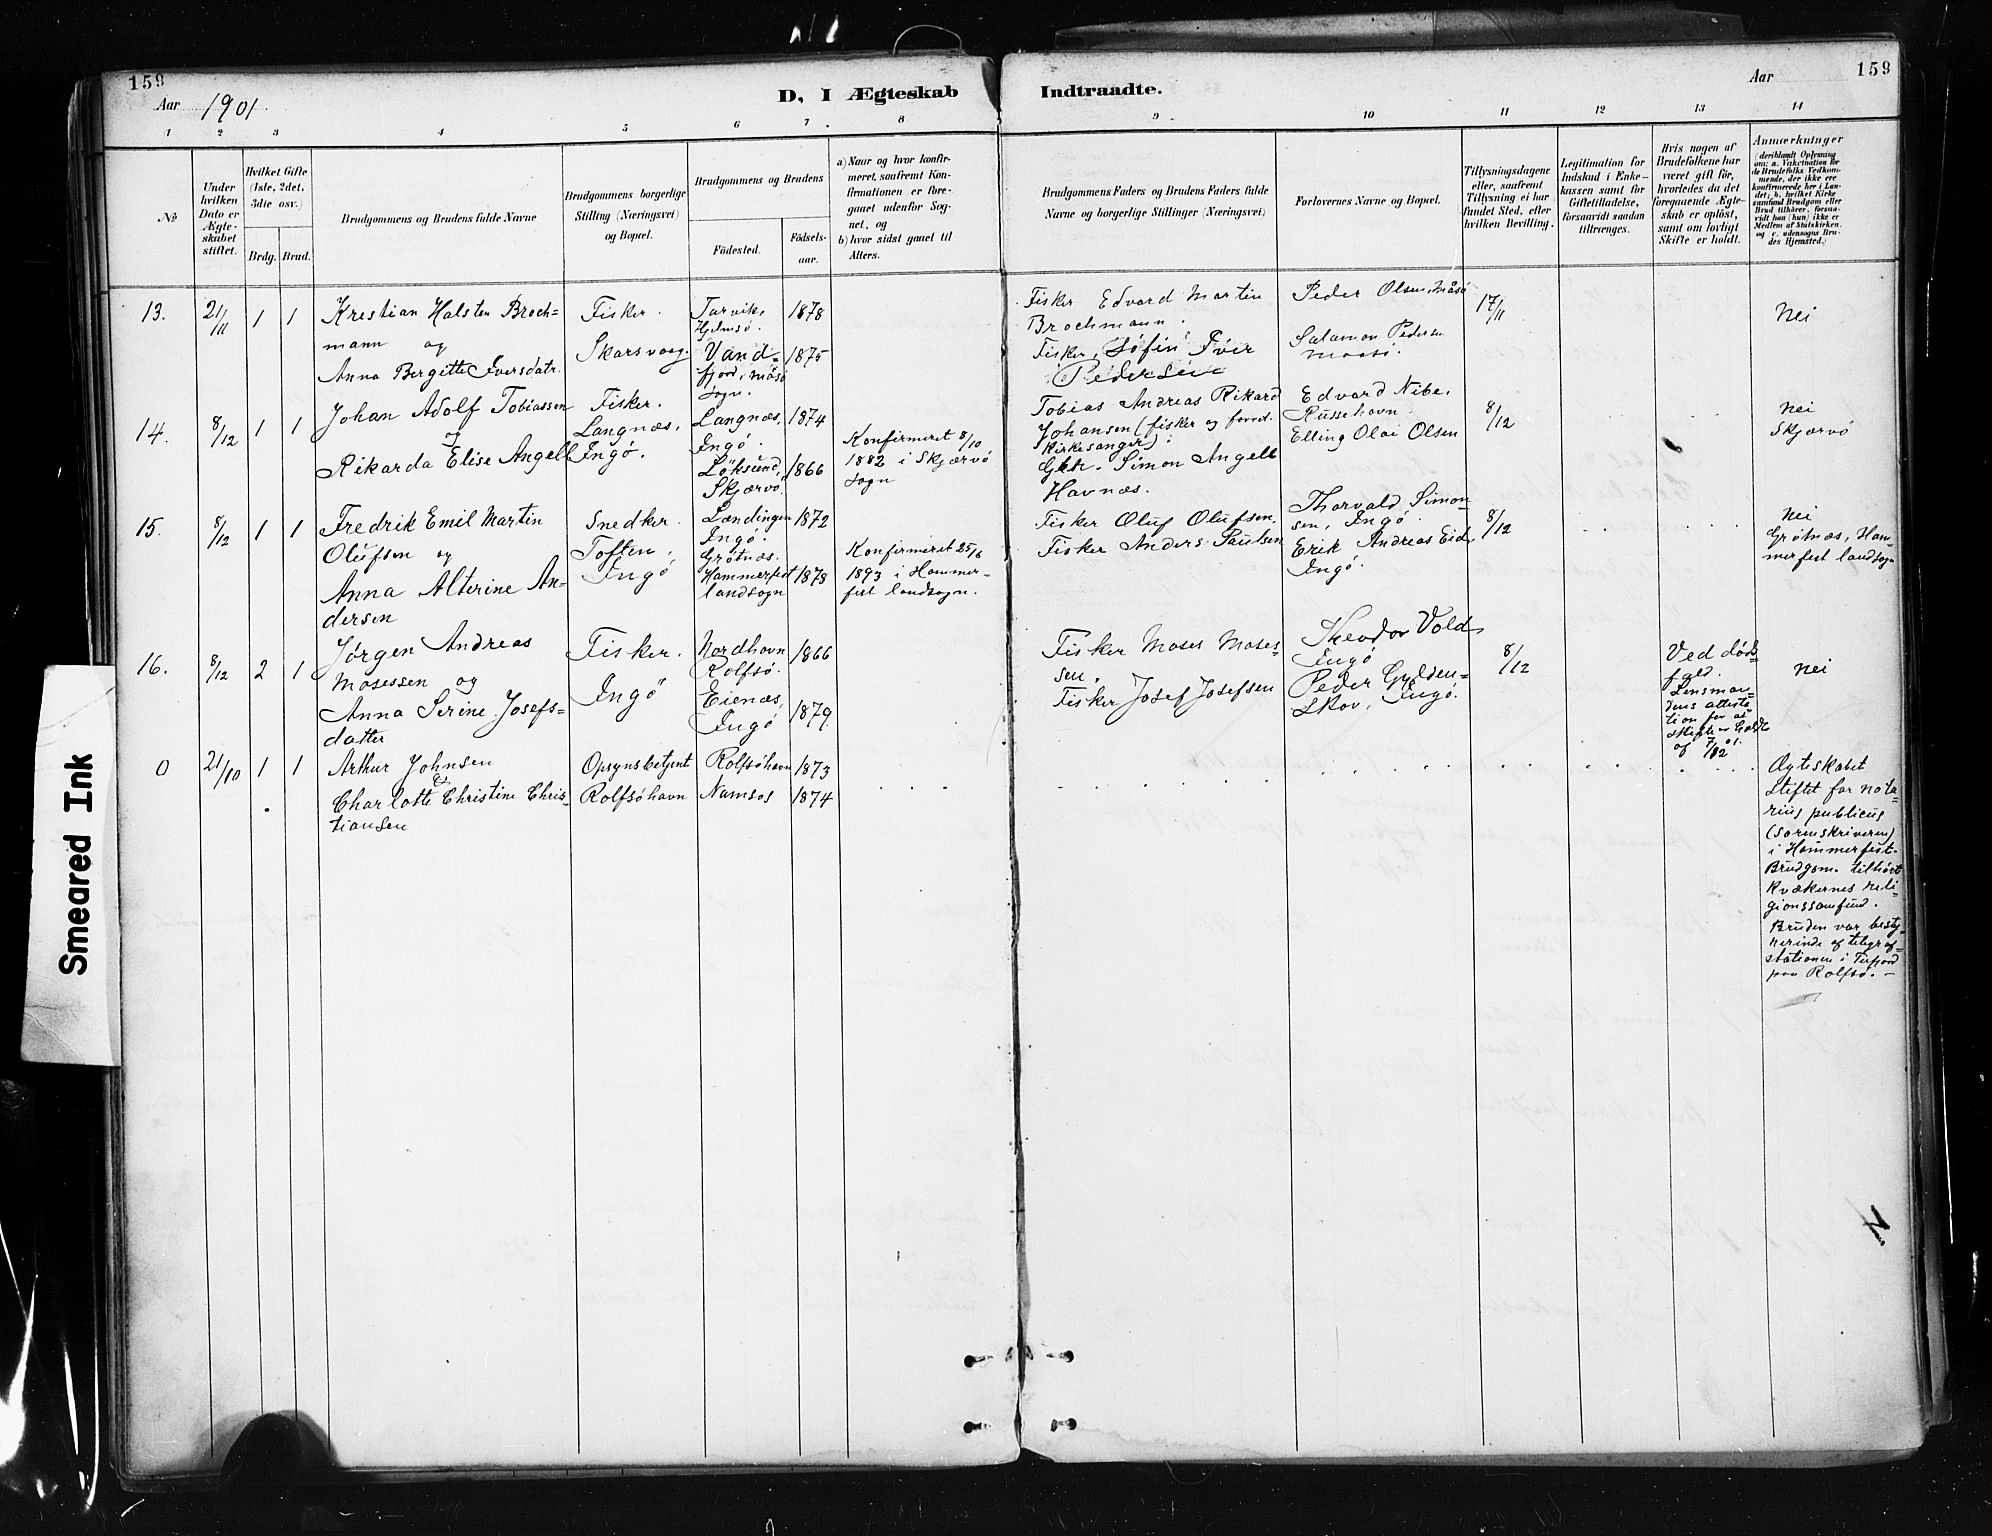 159
Aar 1901
D, I Ægteskab Indtraadte.
Aar
159
1 2 3 4 5 6 7 8 9 10 11 12 13 14
№
Under hvilken Dato er Ægteskabet stiftet.
Hvilket Gifte (1ste, 2det, 3die osv.)
Brdg. Brud.
Brudgommens og Brudens fulde Navne
Brudgommens borgerlige Stilling (Næringsvei) og Bopæl.
Brudgommens og Brudens
Födested.
Födselsaar.
a) Naar og hvor konfirmeret, saafremt Konfirmationen er foregaaet udenfor Sognet, og
b) hvor sidst gaaet til Alters.
Brudgommens Faders og Brudens Faders fulde Navne og borgerlige Stillinger (Næringsvei)
Forlovernes Navne og Bopæl.
Tillysningsdagene eller, saafremt Tillysning ei har fundet Sted, efter hvilken Bevilling.
Legitimation for Indskud i Enkekassen samt for Giftetilladelse, forsaavidt saadan tiltrænges.
Hvis nogen af Brudefolkene har været gift för, hvorledes da det foregaaende Ægteskab er oplöst, samt om lovligt Skifte er holdt.
Anmærkninger
(deriblandt Oplysning om: a. Vakcination for de Brudefolks Vedkommende, der ikke ere konfirmerede her i Landet; b. hvilket Kirkesamfund Brudgom eller Brud tilhörer, forsaavidt han (hun) ikke er Medlem af Statskirken. og c. udensogns Brudes Hjemsted.)
13. 21/11 1 1
Kristian Halsten Broch-
mann og
Anna Bergitte Iversdatr.
Fisker.
Skarsvaag.
Tarvik,
Hjelmsö. 1878
Vand-
fjord, Måsö
sogn. 1875
Fisker Edvard Martin
Brochmann.
Fisker, Sofin Iver
Pedersen
Peder Olsen, Måsö
Salamon Pedersen
Maasö.
17/11
Nei
14. 8/12 1 1
Johan Adolf Tobiassen
og
Rikarda Elise Angell
Fisker.
Langnæs,
Ingö.
Langnæs,
Ingö. 1874
Löksund,
Skjærvö. 1866
Konfirmeret 8/10
1882 i Skjærvö
sogn
Tobias Andreas Rikard
Johansen (fisker og forrd.
kirkesanger);
Gbr. Simon Angell
Havnæs.
Edvard Nibe,
Russehavn
Elling Olai Olsen
8/12
Nei
Skjærvö
15. 8/12 1 1
Fredrik Emil Martin
Olufsen og
Anna Alterine An-
dersen
Snedker.
Toften,
Ingö
Lændingen
Ingö. 1872
Grötnæs.
Hammerfest
landsogn 1878
Konfirmeret 25/6
1893 i Hammer-
fest landsogn.
Fisker Oluf Olufsen,
Fisker Anders Paulsen
Thorvald Simon-
sen, Ingö.
Erik Andreas Eid,
Ingö.
8/12
Nei
Grötnæs, Ham-
merfest landsogn
16. 8/12 2 1
Jörgen Andreas
Mosessen og
Anna Serine Josefs-
datter
Fisker.
Ingö
Nordhavn
Rolfsö. 1866
Eienæs,
Ingö 1879
Fisker Moses Moses-
sen.
Fisker Josef Josefsen
Theodor Vold
Ingö
Peder Gylden-
skov, Ingö.
8/12
Ved döds-
fald.
Lensman-
dens attesta-
tion for at
skifte er holdt
af 7/12 01.
Nei
0 21/10 1 1
Arthur Johnsen
&
Charlotte Christine Chris-
tiansen
Opsynsbetjent
Rolfsöhavn
Rolfsöhavn 1873
Namsos 1874
Ægteskabet
stiftet for nota-
rius publicus
(sorenskriveren)
i Hammerfest.
Brudgom. tilhört
Kvækernes reli-
gionssamfund.
Bruden var besty-
rerinde af telegraf-
stationen i Tufjord
paa Rolfsö. -
Smeared Ink